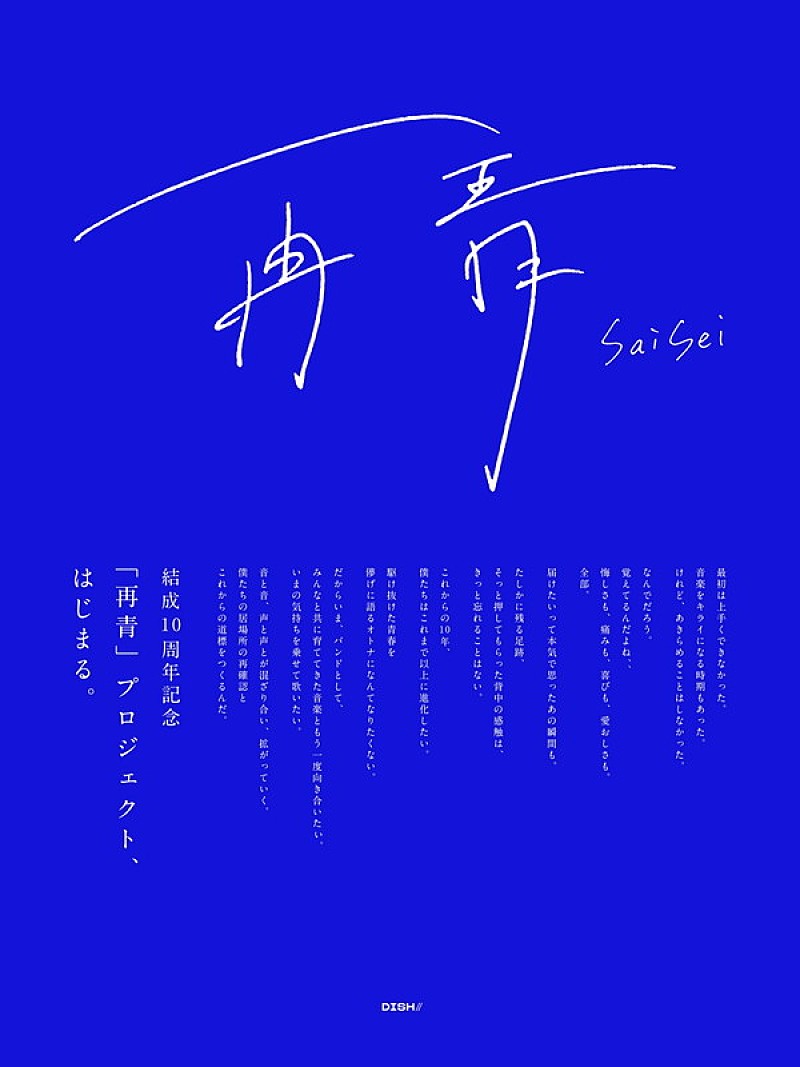 再青
saisei
最初は上手くできなかった。
音楽をキライになる時期もあった。
けれど、あきらめることはしなかった。
なんでだろう。
覚えてるんだよね、
悔しさも、痛みも、喜びも、愛おしさも。
全部。
届けたいって本気で思ったあの瞬間も。
たしかに残る足跡。
そっと押してもらった背中の感触は、
きっと忘れることはない。
これからの10年、
僕たちはこれまで以上に進化したい。
駆け抜けた青春を
儚げに語るオトナになんてなりたくない。
だからいま、バンドとして、
みんなと共に育ててきた音楽ともう一度向き合いたい。
いまの気持ちを乗せて歌いたい。
音と音、声と声とが混ざり合い、拡がっていく。
僕たちの居場所の再確認と
これからの道標をつくるんだ。
結成10周年記念
「再青」プロジェクト、
はじまる。
DISH//